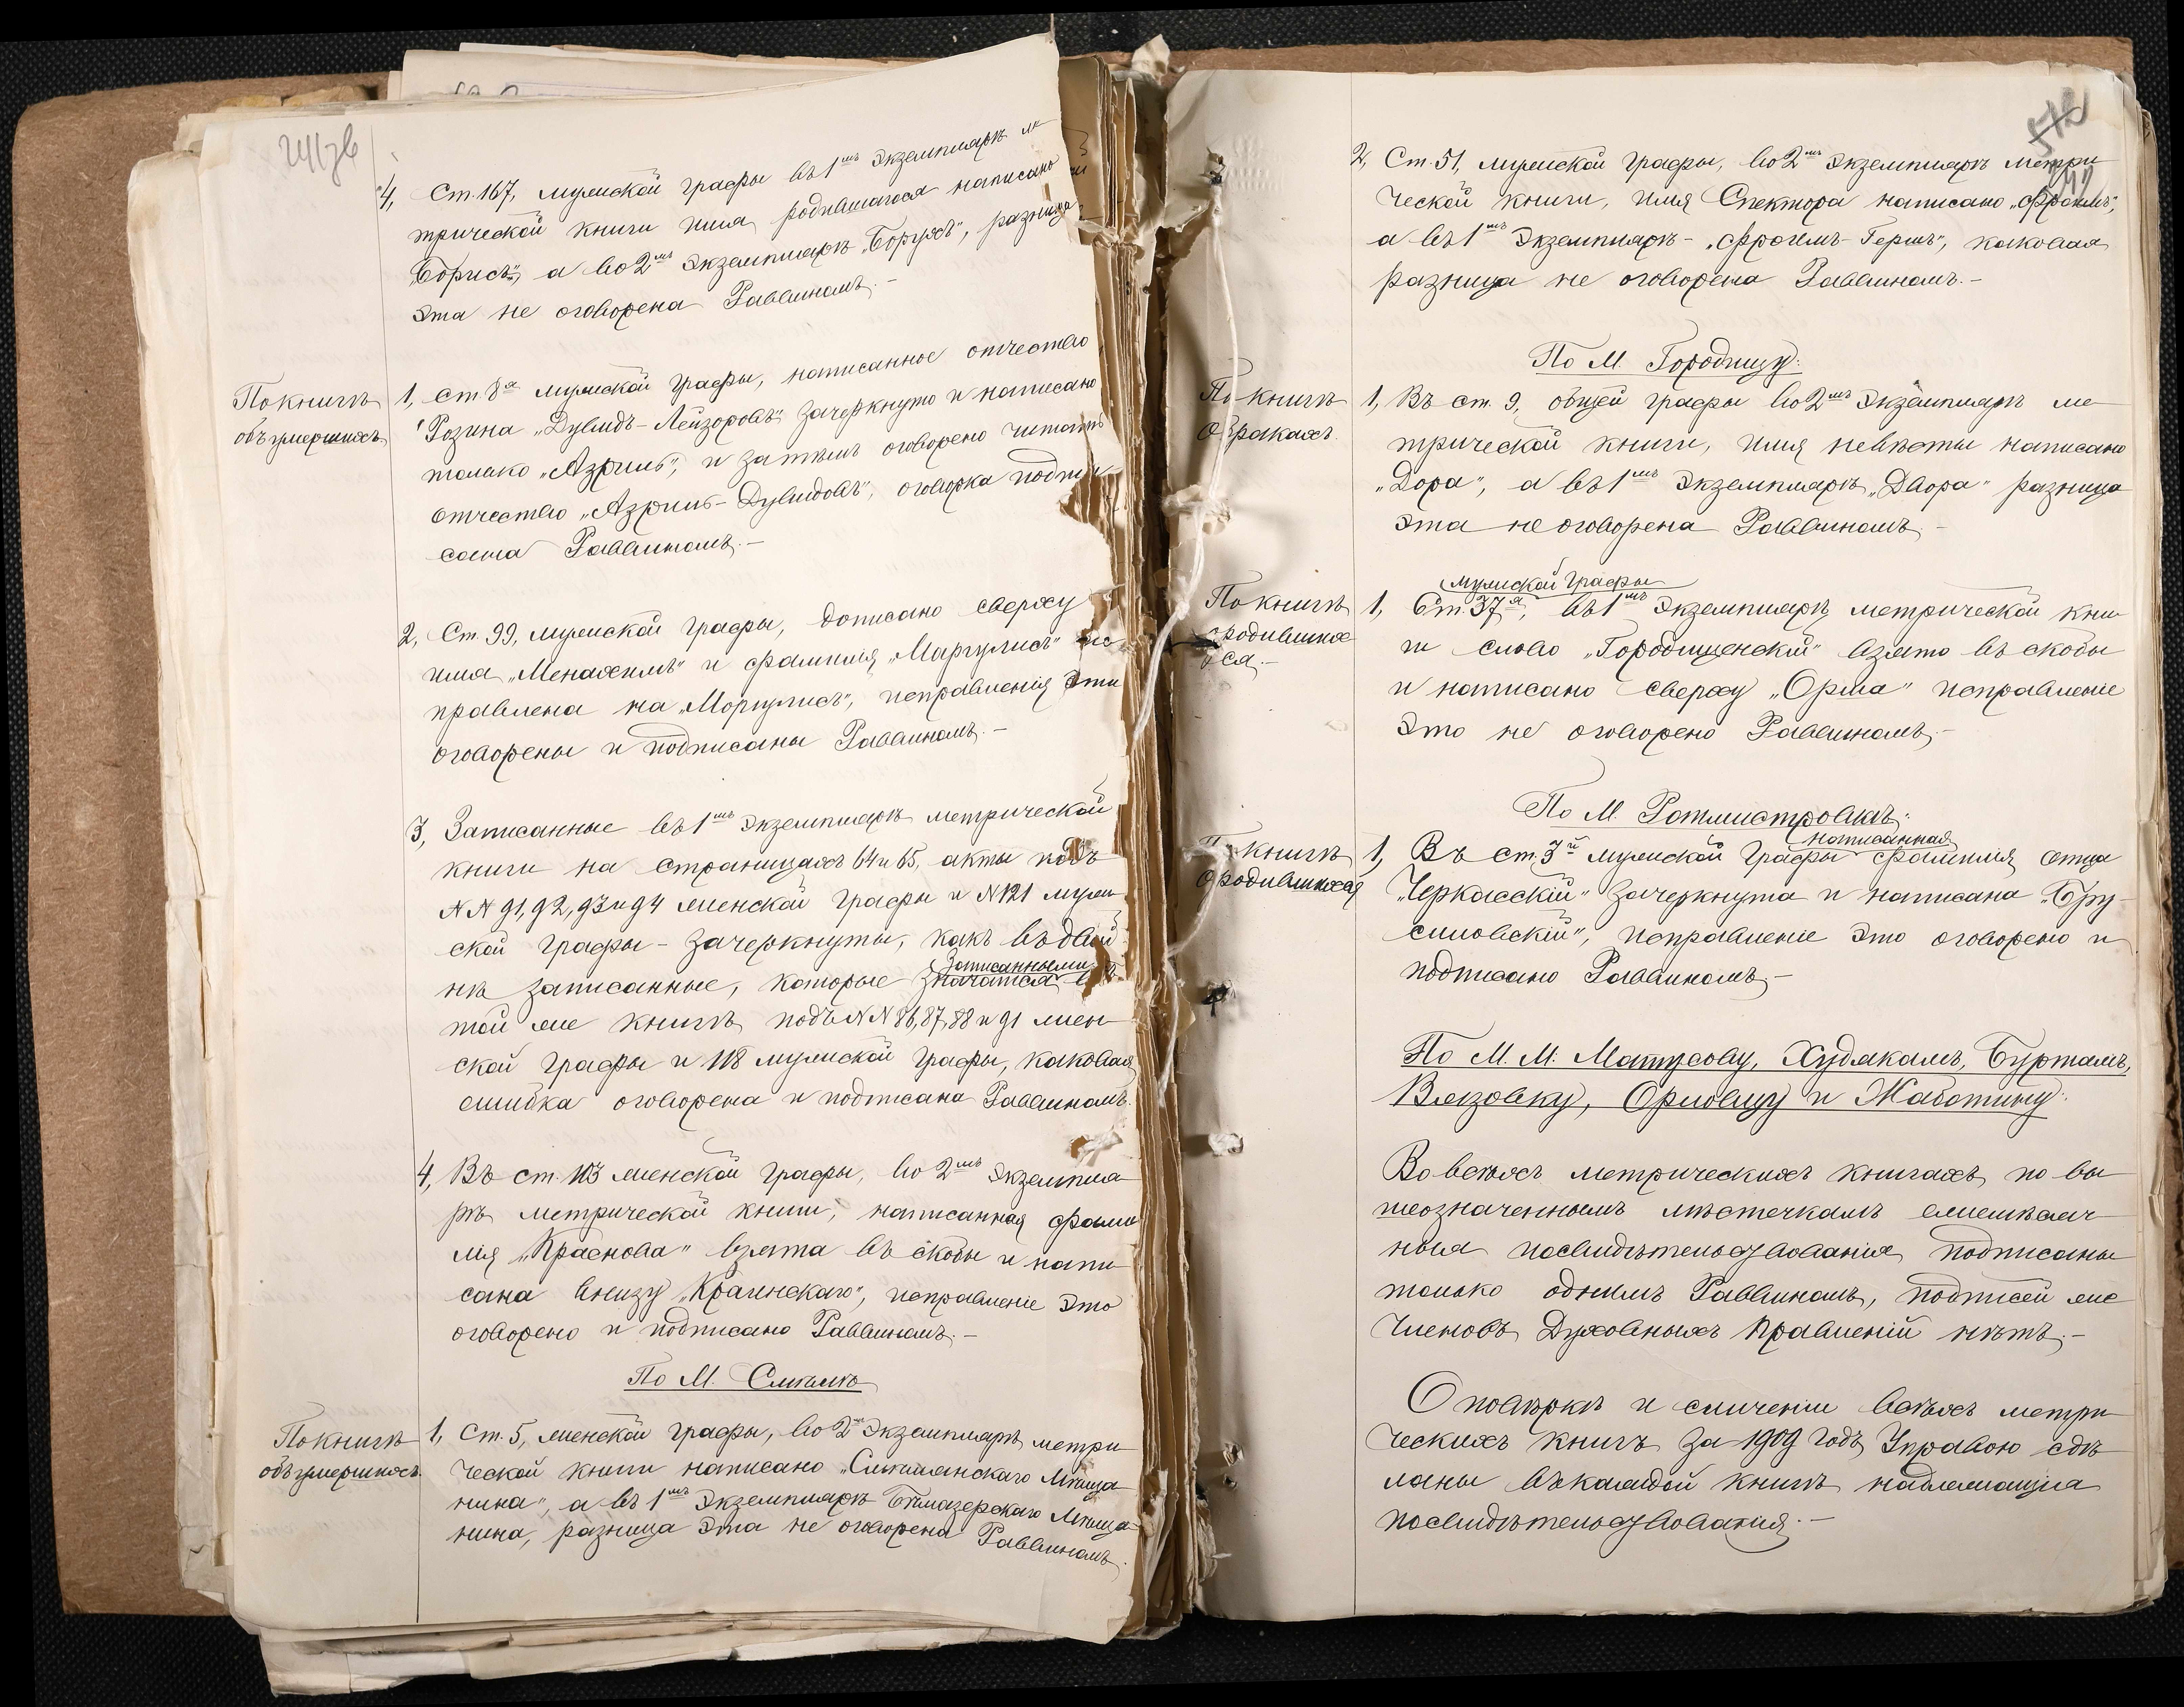 4, Ст. 167, мужской графы въ 1мъ экземпляръ ме
трической книги имя родившагося написано
"Борисъ", а во 2мъ экземпляръ "Борухъ", разница
эта не оговорена Раввиномъ.-
По книгѣ
объ умершихъ
1, Ст. 8я мужской графы, написанное отчество
Розина "Дувидъ-Лейзоровъ" зачеркнуто и написано
только "Азриль", и затѣмъ оговорено читать
отчество "Азриль-Дувидовъ", оговорка подпи
сана Раввиномъ.-
2, Ст. 99, мужской графы, дописано сверху
имя "Менахимъ" и фамилія "Маргулисъ" ис
правлена на "Моргулисъ", исправленія эти
оговорены и подписаны Раввиномъ.-
3, Записанные въ 1мъ экземпляръ метрической
книги на страницахъ 64 и 65, акты подъ
NN 91, 92, 93 и 94 женской графы и N 121 муж
ской графы - зачеркнуты, какъ въ двой
Записанными
нѣ записанные, которые значатся въ
той же книгѣ подъ NN 86, 87, 88 и 91 жен
ской графы и 118 мужской графы, каковая
ошибка оговорена и подписана Раввиномъ.
4, Въ ст. 103 женской графы, во 2мъ экземпля
рѣ метрической книги, написанная фами
лія "Краснова" взята въ скобы и напи
сана внизу "Краинскаго", исправленіе это
оговорено и подписано Раввиномъ.-
По М. Смѣлѣ
По книгѣ
объ умершихъ.
1, Ст. 5, женской графы, во 2мъ экземпляръ метри
ческой книги написано "Смѣлянскаго Мѣща
нина", а въ 1мъ экземпляръ Бѣлазерскаго Мѣща
нина, разница эта не оговорена Раввиномъ.
2, Ст. 51, мужской графы, во 2мъ экземпляръ метри
ческой книги, имя Спектора написано "Фроимъ",
а въ 1мъ экземпляръ - "Фроимъ-Гершъ", каковая
разница не оговорена Раввиномъ.-
По М. Городищу:
По книгѣ
О бракахъ.
1, Въ ст. 9, общей графы во 2мъ экземпляръ ме
трической книги, имя невѣсты написано
"Дора", а въ 1мъ экземпляръ "Двора" разница
эта не оговорена Раввиномъ.-
По книгѣ
о родивших
ся.-
мужской графы
1, Ст. 37я, въ 1мъ экземпляръ метрической кни
ги слово "Городищенскій" взято въ скобы
и написано сверху "Орла" исправленіе
это не оговорено Раввиномъ.-
По М. Ротмистровкѣ:
По книгѣ
О родившихся
написанная
1, Въ ст. 3й мужской графы фамилія отца
"Черкасскій" зачеркнута и написана "Бру-
силовскій", исправленіе это оговорено и
подписано Раввиномъ.-
По М. М. Матусову, Худякамъ, Буртамъ,
Вязовку, Орловцу и Жаботину:
Во всѣхъ метрическихъ книгахъ по вы
шеозначеннымъ мѣстечкамъ ежемѣсяч
ныя посвидѣтельствованія подписаны
только однимъ Раввиномъ, подписей же
Членовъ Духовныхъ Правленій нѣтъ.-
О повѣркѣ и сличеніи всѣхъ метри
ческихъ книгъ за 1909 годъ Управою сдѣ
ланы въ каждой книгѣ надлежащія
посвидѣтельствованія.-